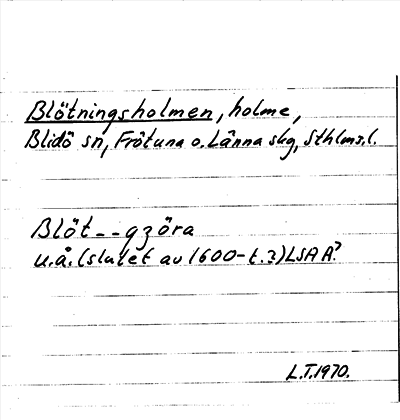 Blötningsholmen, holme,
Blidö sn, Frötuna o. Länna skg, Sthlms.l.
Blöt--gzöra
u.å. (slutet av 1600-t.?) LSA A?
L.T. 1970.